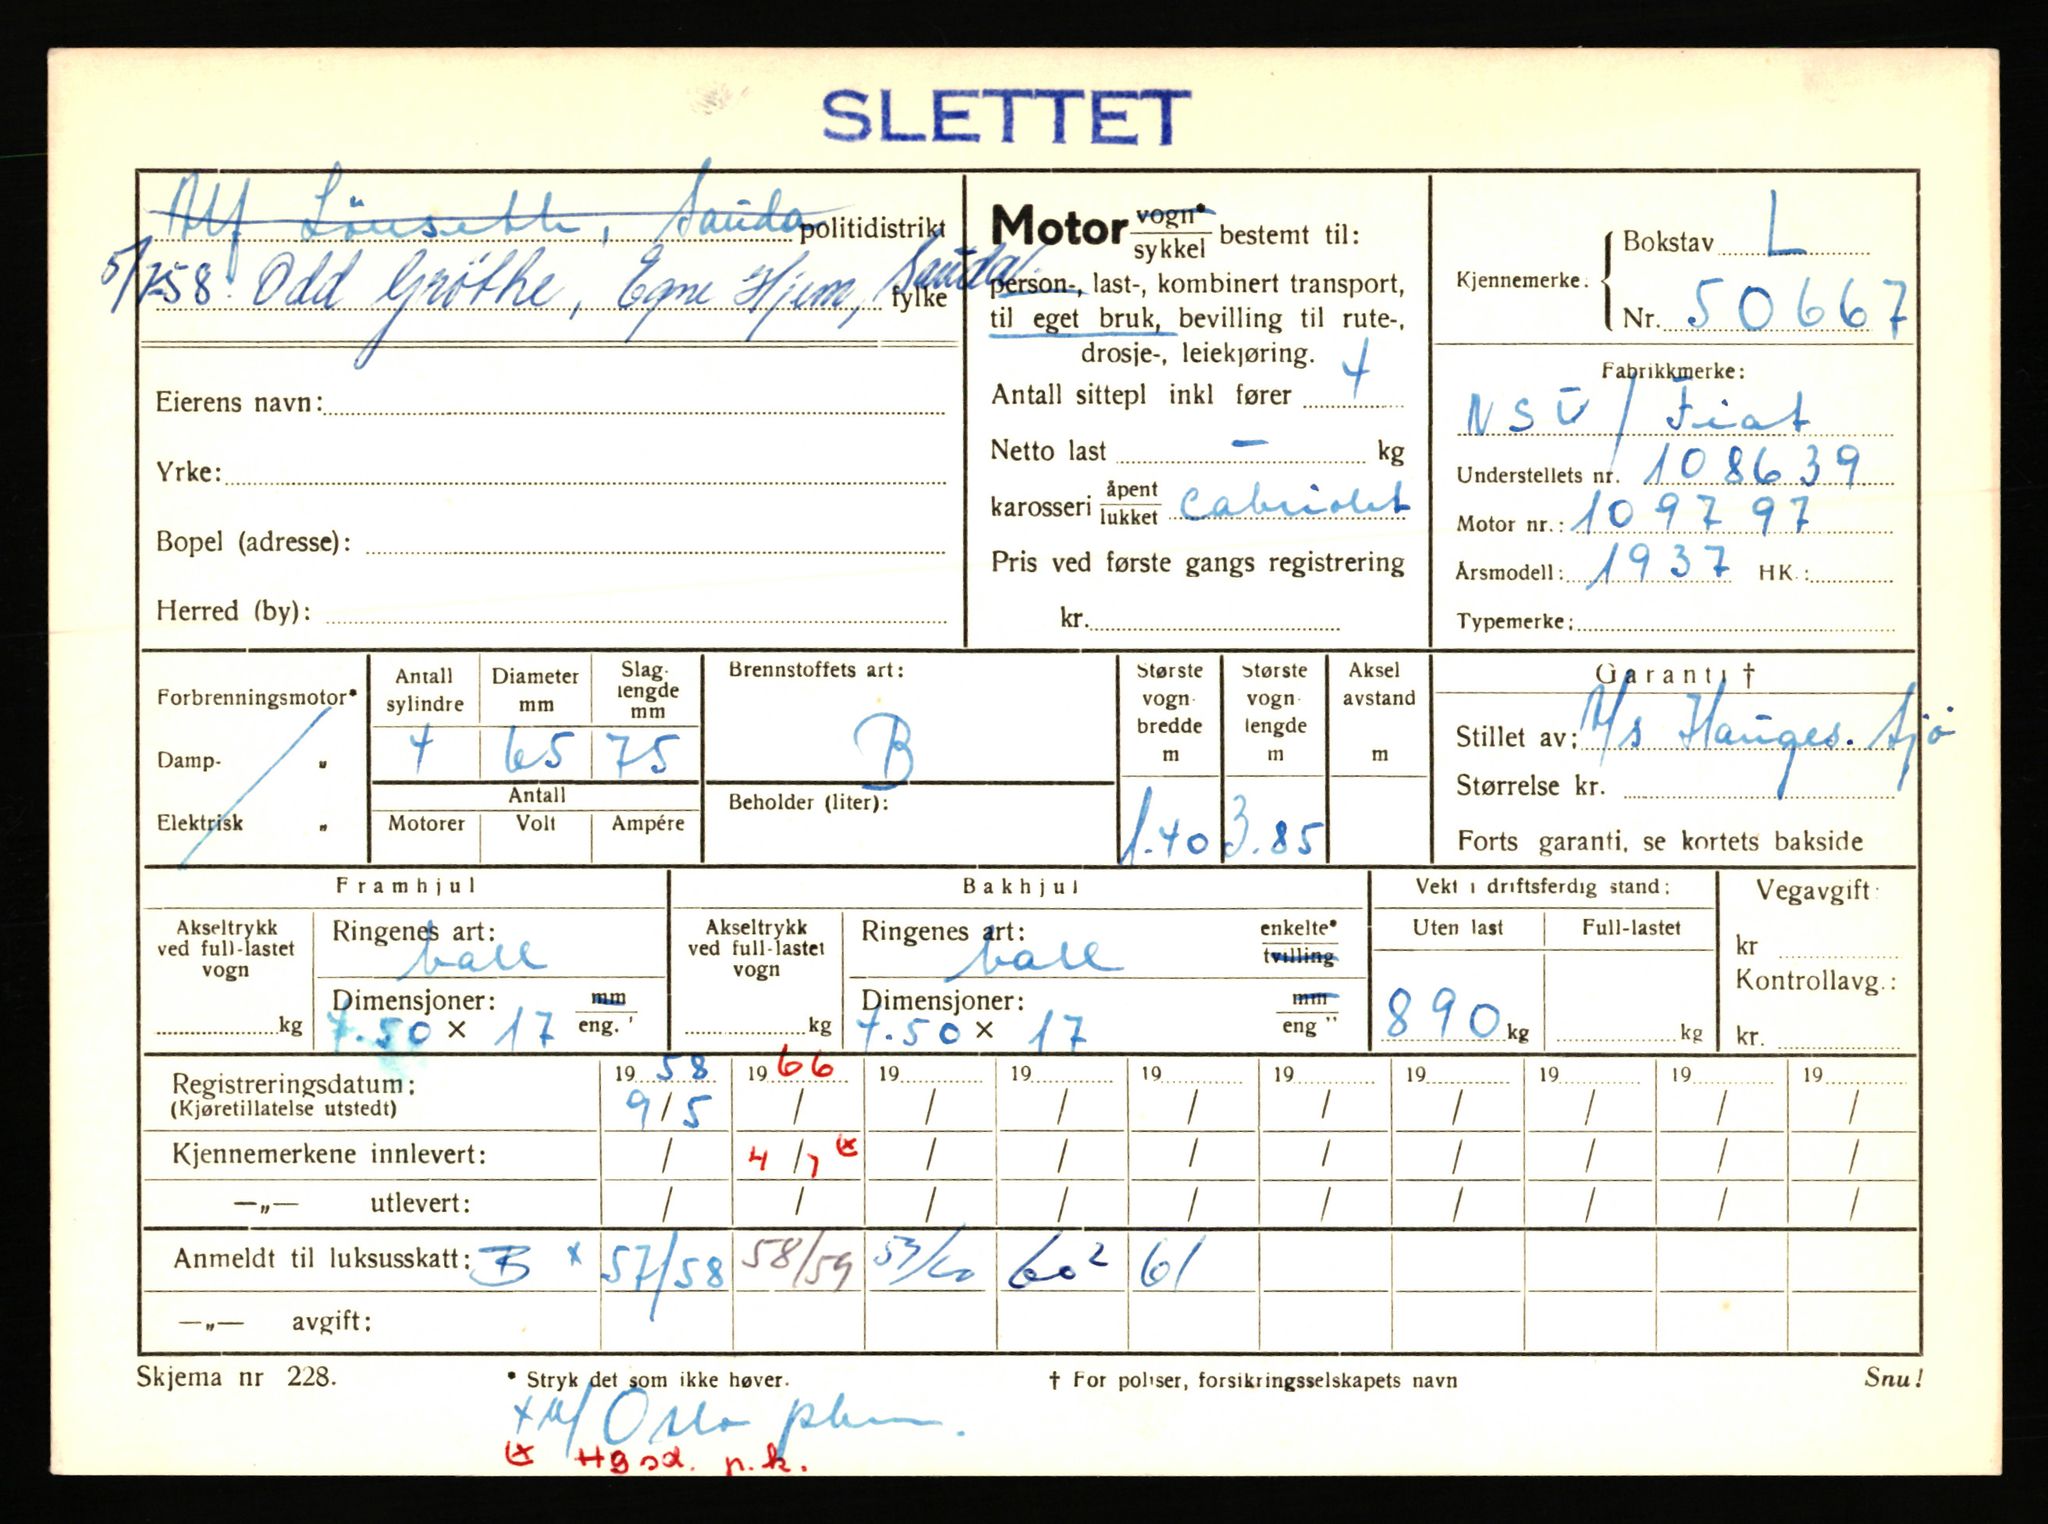 SLETTET
Alf Lönseth, Sauda politidistrikt
58. Odd Grøthe, Egne Hjem, Sauda. fylke
Eierens navn:
Yrke:
Bopel (adresse):
Herred (by):
Motor vogn*
sykkel bestemt til:
person-, last-, kombinert transport,
til eget bruk, bevilling til rute-,
drosje-, leiekjøring.
Antall sittepl inkl fører 4
Netto last – kg
karosseri åpent
lukket Cabriolet
Pris ved første gangs registrering
kr.
Kjennemerke.
Bokstav L
Nr. 50667
Fabrikkmerke:
NSU / Fiat
Understellets nr. 108639
Motor nr.: 109797
Årsmodell: 1937 HK.:
Typemerke:
Forbrenningsmotor*
Damp- „
Elektrisk „
Antall sylindre 4
Diameter mm 65
Slag-lengde mm 75
Antall
Motorer Volt Ampére
Brennstoffets art:
B
Beholder (liter):
Største vogn-bredde m 1.40
Største vogn-lengde m 3.85
Aksel avstand m
Garanti †
Stillet av: A/s Hauges. Sjö
Størrelse kr.
Forts garanti, se kortets bakside
Framhjul
Akseltrykk ved full-lastet vogn
kg
Ringenes art:
ball
Dimensjoner: mm
7.50 × 17 eng. "
Bakhjul
Akseltrykk ved full-lastet vogn
kg
Ringenes art: enkelte*
ball tvilling
Dimensjoner: mm
7.50 × 17 eng "
Vekt i driftsferdig stand:
Uten last Full-lastet
890 kg kg
Vegavgift:
kr
Kontrollavg.:
kr.
Registreringsdatum: 19 58 19 66 19 19 19 19 19 19 19 19
(Kjøretillatelse utstedt) 9/5 / / / / / / / / /
Kjennemerkene innlevert: / 4/1 (x / / / / / / / /
—„— utlevert: / / / / / / / / / /
Anmeldt til luksusskatt: B x 57/58 58/59 59/60 60² 61
—„— avgift:
Skjema nr 228. * Stryk det som ikke høver. † For poliser, forsikringsselskapets navn Snu!
Oslo
(x Hgsd. p.k.